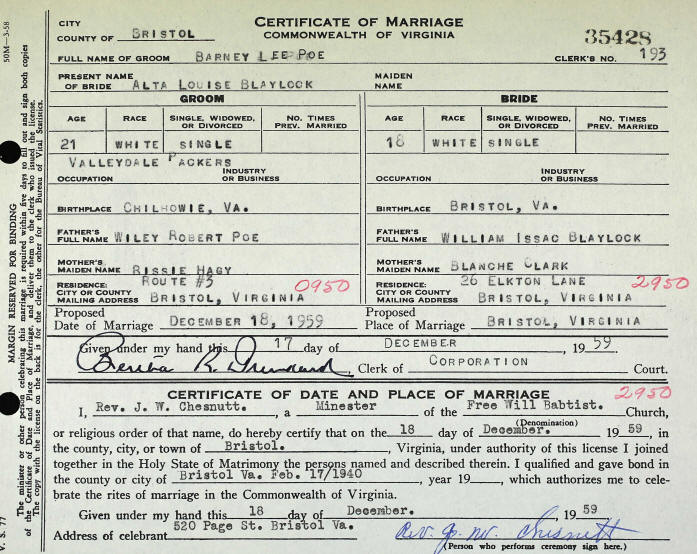 CITY
COUNTY OF BRISTOL
CERTIFICATE OF MARRIAGE
COMMONWEALTH OF VIRGINIA
35428
FULL NAME OF GROOM BARNEY LEE POE CLERK'S NO. 193
PRESENT NAME OF BRIDE ALTA LOUISE BLAYLOCK MAIDEN NAME
GROOM BRIDE
AGE RACE SINGLE, WIDOWED, OR DIVORCED NO. TIMES PREV. MARRIED AGE RACE SINGLE, WIDOWED, OR DIVORCED NO. TIMES PREV. MARRIED
21 WHITE SINGLE 18 WHITE SINGLE
VALLEYDALE PACKERS
OCCUPATION INDUSTRY OR BUSINESS OCCUPATION INDUSTRY OR BUSINESS
BIRTHPLACE CHILHOWIE, VA. BIRTHPLACE BRISTOL, VA.
FATHER'S FULL NAME WILEY ROBERT POE FATHER'S FULL NAME WILLIAM ISSAC BLAYLOCK
MOTHER'S MAIDEN NAME RISSIE HAGY MOTHER'S MAIDEN NAME BLANCHE CLARK
RESIDENCE: ROUTE #3 0950 RESIDENCE: 26 ELKTON LANE 2950
CITY OR COUNTY MAILING ADDRESS BRISTOL, VIRGINIA CITY OR COUNTY MAILING ADDRESS BRISTOL, VIRGINIA
Proposed Date of Marriage DECEMBER 18, 1959 Proposed Place of Marriage BRISTOL, VIRGINIA
Given under my hand this 17 day of DECEMBER, 1959
Clerk of CORPORATION Court.
CERTIFICATE OF DATE AND PLACE OF MARRIAGE 2950
I, Rev. J. W. Chesnutt. , a Minester of the Free Will Babtist. Church,
(Denomination)
or religious order of that name, do hereby certify that on the 18 day of December. 1959, in
the county, city, or town of Bristol. , Virginia, under authority of this license I joined
together in the Holy State of Matrimony the persons named and described therein. I qualified and gave bond in
the county or city of Bristol Va. Feb. 17/1940 , year 19 , which authorizes me to cele-
brate the rites of marriage in the Commonwealth of Virginia.
Given under my hand this 18 day of December. , 1959
Address of celebrant 520 Page St. Bristol Va. Rev. J. W. Chesnutt
(Person who performs ceremony sign here.)
50M—3-58
MARGIN RESERVED FOR BINDING
The minister or other person celebrating this marriage is required within five days to fill out and sign both copies
of the Certificate of Date and Place of Marriage, and deliver them to the clerk who issued the license.
The copy with the license on the back is for the clerk, the other for the Bureau of Vital Statistics.
V. S. 77